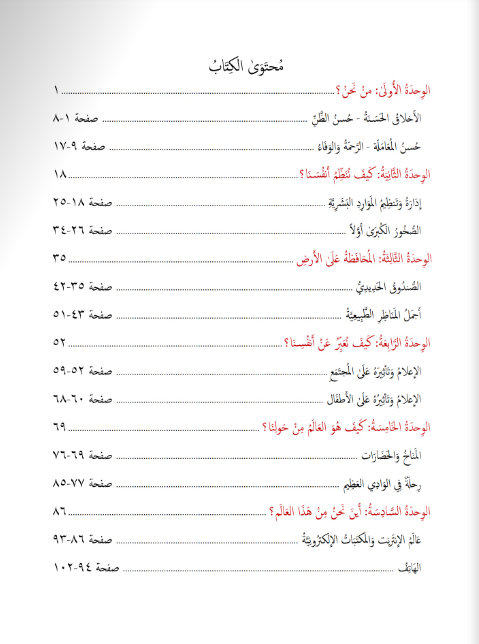 مُحتَوَى الكِتَابُ
الوِحدَةُ الأُولَى: مَنْ نَحنُ؟ ١
الأَخلاقُ الحَسَنةُ - حُسنُ الظَّنِّ صفحة ١-٨
حُسنُ المُعَامَلَة - الرَّحمَةُ وَالوَفَاءُ صفحة ٩-١٧
الوِحدَةُ الثَّانِيَةُ: كَيفَ نُنَظِّمُ أَنفُسَنَا؟ ١٨
إدَارَةُ وتَنظِيمُ المَوَارِدِ البَشَرِيَّةِ صفحة ١٨-٢٥
الصُّخُورُ الكُبرَى أَوَّلاً صفحة ٢٦-٣٤
الوِحدَةُ الثَّالِثَةُ: المُحَافَظَةُ عَلَى الأَرضِ ٣٥
الصُّندُوقُ الحَدِيدِيُّ صفحة ٣٥-٤٢
أَجمَلُ المَنَاظِرِ الطَّبِيعِيَّةِ صفحة ٤٣-٥١
الوِحدَةُ الرَّابِعَةُ: كَيفَ نُعَبِّرُ عَنْ أَنفُسِنَا؟ ٥٢
الإعلامُ وَتَأثِيرُهُ عَلَى المُجتَمَعِ صفحة ٥٢-٥٩
الإعلامُ وَتَأثِيرُهُ عَلَى الأَطفَالِ صفحة ٦٠-٦٨
الوِحدَةُ الخَامِسَةُ: كَيفَ هُوَ العَالَمُ مِنْ حَولِنَا؟ ٦٩
المَنَاخُ وَالحَضَارَات صفحة ٦٩-٧٦
رِحلَةٌ فِي الوَادِي العَظِيمِ صفحة ٧٧-٨٥
الوِحدَةُ السَّادِسَةُ: أَينَ نَحنُ مِنْ هَذَا العَالَم؟ ٨٦
عَالَمُ الإنتَرنِت وَالمَكتَبَاتُ الإلكترُونِيَّةُ صفحة ٨٦-٩٣
الهَاتِفُ صفحة ٩٤-١٠٢